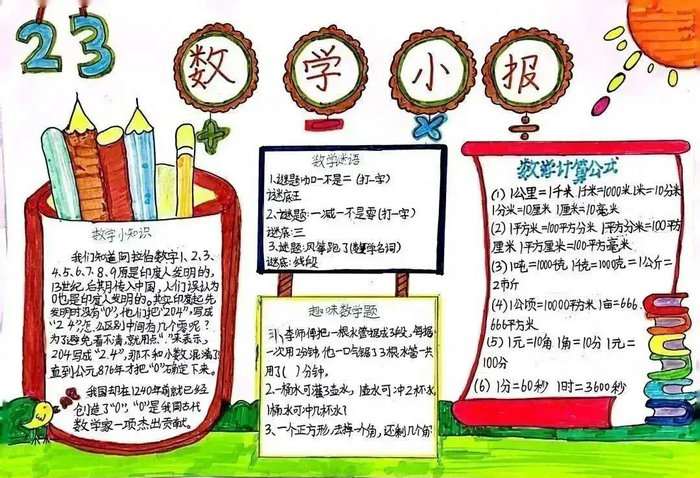 23
数学小报
+ − × ÷
数学小知识
我们知道阿拉伯数字1、2、3、
4、5、6、7、8、9原是印度人发明的,
13世纪后期传入中国,人们误认为
0也是印度人发明的。其实印度起先
发明时没有“0”,他们把“204”,写成
“2 4”,怎么区别中间有几个零呢?
为了避免看不清,就用点“·”来表示,
204写成“2.4”,那不和小数混淆了
直到公元876年才把“0”确定下来。
我国却在1240年前就已经
创造了“0”。“0”是我国古代
数学家一项杰出贡献。
数学谜语
1、谜题:加一不是二(打一字)
谜底:王
2、谜题:一减一不是零(打一字)
谜底:三
3、谜题:风筝跑了(数学名词)
谜底:线段
趣味数学题
1、李师傅把一根水管锯成3段,每锯
一次用2分钟,他一口气锯了3根水管一共
用了( )分钟。
2、一桶水可灌3壶水,1壶水可冲2杯水,
1桶水可冲几杯水?
3、一个正方形,去掉一个角,还剩几个角
数学计算公式
(1) 1公里=1千米 1千米=1000米 1米=10分米
1分米=10厘米 1厘米=10毫米
(2) 1平方米=100平方分米 1平方分米=100平方
厘米 1平方厘米=100平方毫米
(3) 1吨=1000千克 1千克=1000克=1公斤=
2市斤
(4) 1公顷=10000平方米 1亩=666.
666平方米
(5) 1元=10角 1角=10分 1元=
100分
(6) 1分=60秒 1时=3600秒